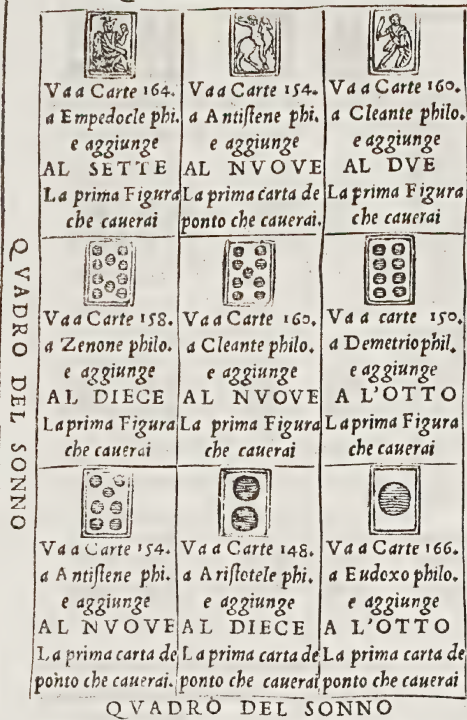 Va a Carte 164.
a Empedocle phi.
e aggiunge
AL SETTE
La prima Figura
che cauerai
Va a Carte 154.
a Antiſtene phi.
e aggiunge
AL NVOVE
La prima carta de
ponto che cauerai.
Va a Carte 160.
a Cleante philo.
e aggiunge
AL DVE
La prima Figura
che cauerai
Va a Carte 158.
a Zenone philo.
e aggiunge
AL DIECE
La prima Figura
che cauerai
Va a Carte 160.
a Cleante philo.
e aggiunge
AL NVOVE
La prima Figura
che cauerai
Va a carte 150.
a Demetrio phil.
e aggiunge
A L'OTTO
La prima Figura
che cauerai
Va a Carte 154.
a Antiſtene phi.
e aggiunge
AL NVOVE
La prima carta de
ponto che cauerai.
Va a Carte 148.
a Ariſtotele phi.
e aggiunge
AL DIECE
La prima carta de
ponto che cauerai.
Va a Carte 166.
a Eudoxo philo.
e aggiunge
A L'OTTO
La prima carta de
ponto che cauerai
QVADRO DEL SONNO
QVADRO DEL SONNO